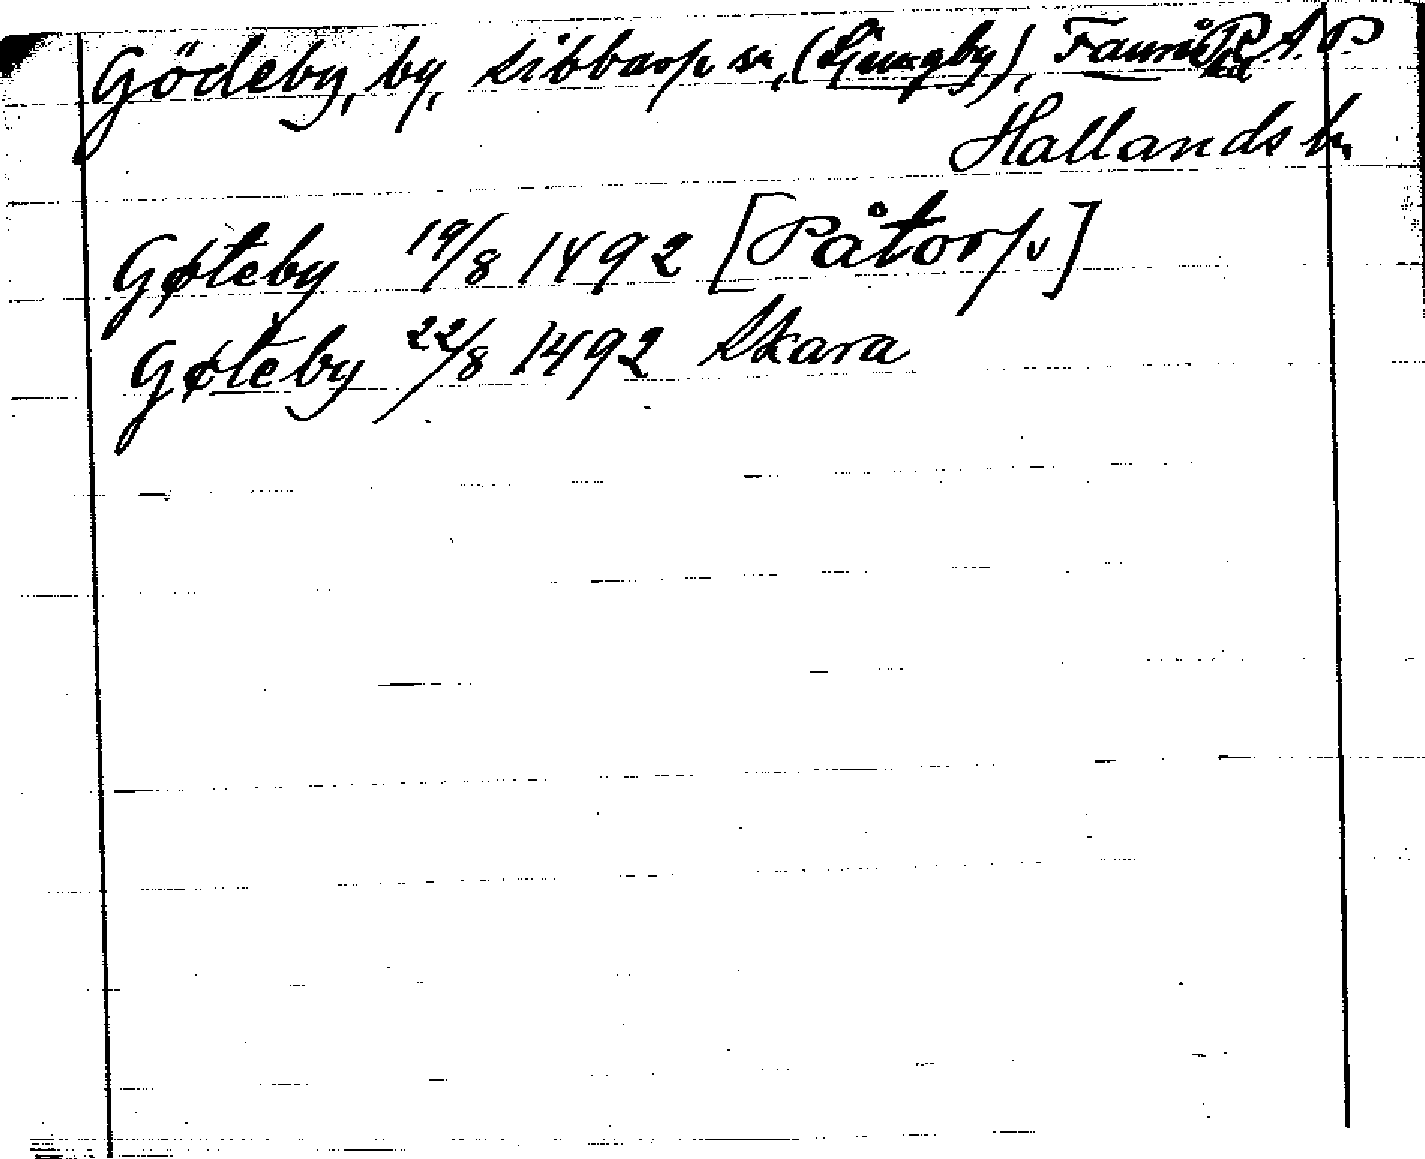 Gödeby, by, Sibbarp sn, (Ljungby), Faurås hd R.A.P
Hallands l.
Gøteby 19/8 1492 [Påtorp]
Gøteby 22/8 1492 Skara